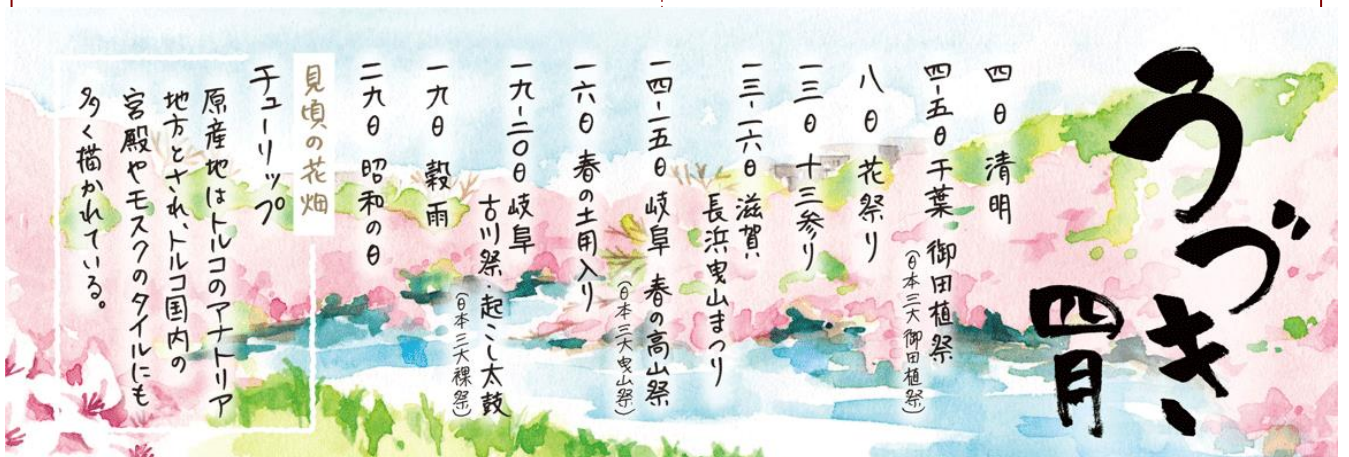 うづき
四月
四日 清明
四-五日 千葉 御田植祭
(日本三大御田植祭)
八日 花祭り
一三日 十三参り
一三-一六日 滋賀
長浜曳山まつり
一四-一五日 岐阜 春の高山祭
(日本三大曳山祭)
一六日 春の土用入り
一九-二〇日 岐阜
古川祭・起こし太鼓
(日本三大裸祭)
一九日 穀雨
二九日 昭和の日
見頃の花畑
チューリップ
原産地はトルコのアナトリア
地方とされ、トルコ国内の
宮殿やモスクのタイルにも
多く描かれている。